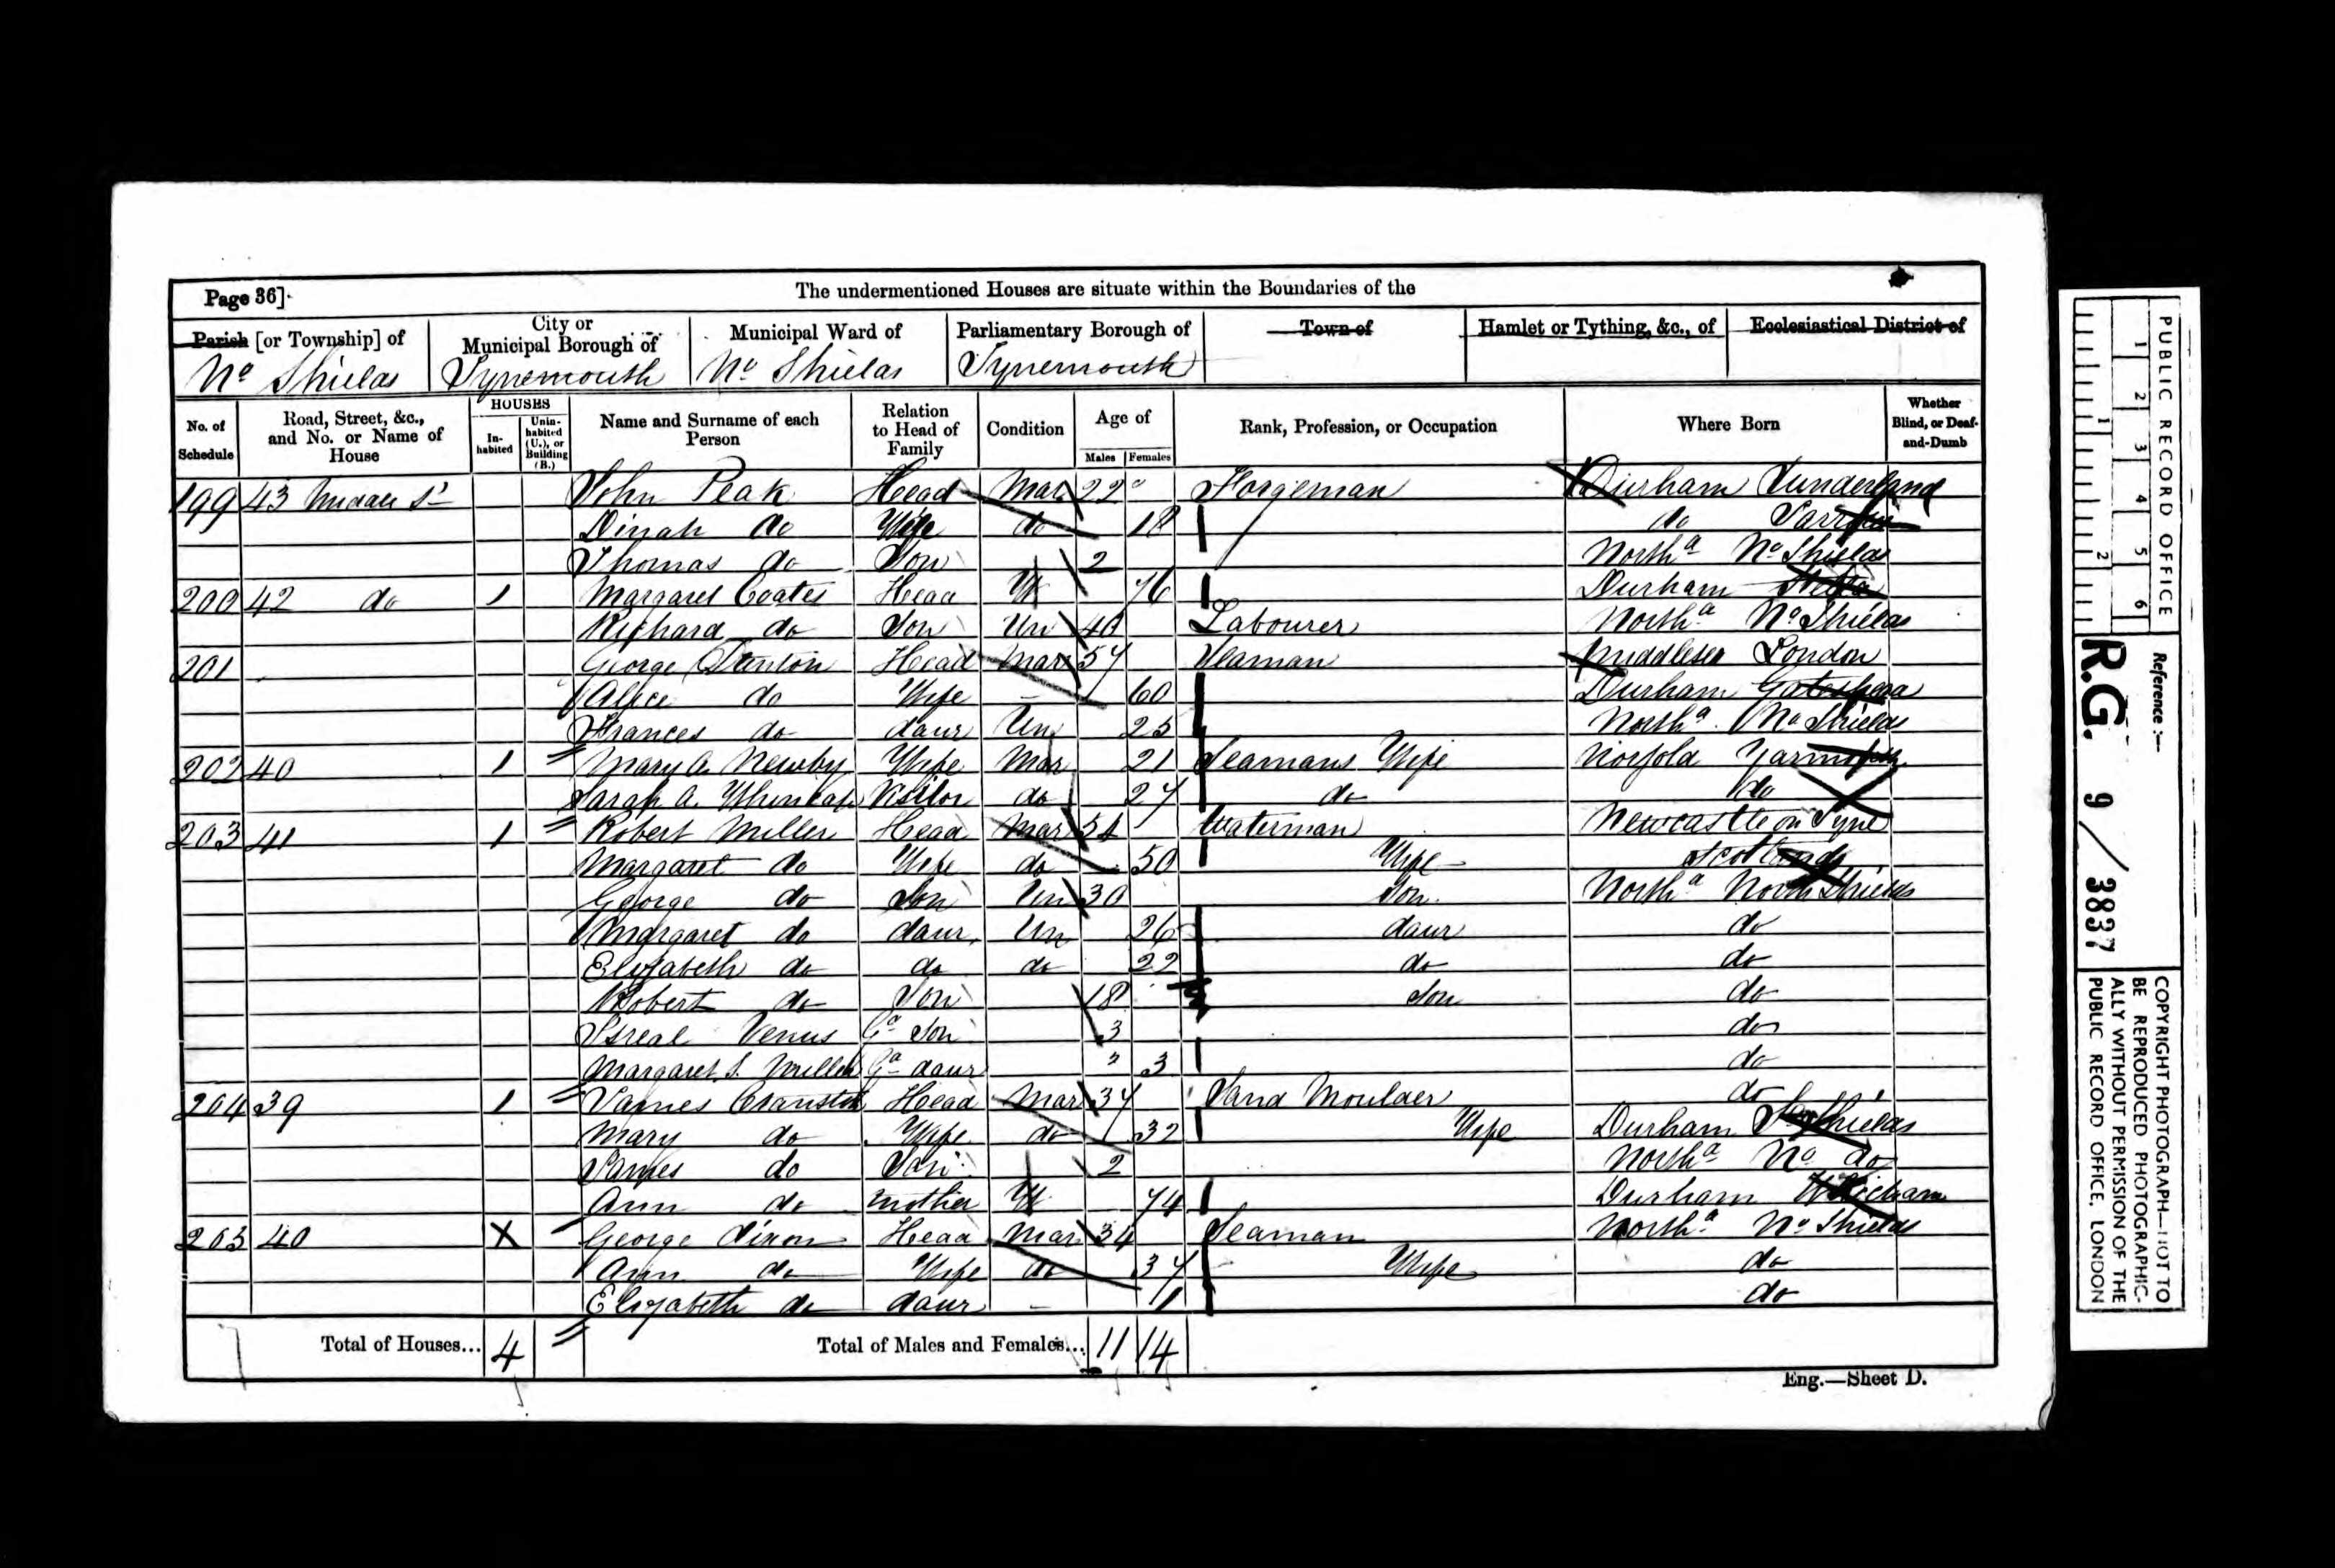 Page 36]
The undermentioned Houses are situate within the Boundaries of the
Parish [or Township] of City or Municipal Borough of Municipal Ward of Parliamentary Borough of Town of Hamlet or Tything, &c., of Ecclesiastical District of
No Shields Tynemouth No Shields Tynemouth
No. of Schedule Road, Street, &c., and No. or Name of House HOUSES In-habited Unin-habited (U.), or Building (B.) Name and Surname of each Person Relation to Head of Family Condition Age of Males Females Rank, Profession, or Occupation Where Born Whether Blind, or Deaf-and-Dumb
199 43 St John Peak Head Mar 22 Forgeman Durham Sunderland
Dinah do Wife do 18 do
Thomas do Son 2 Northd No Shields
200 42 do 1 Margaret Coates Head W 76 Durham
Richard do Son Un 40 Labourer Northd No Shields
201 George Head Mar 57 Seaman Middlesex London
Alice do Wife - 60 Durham Gateshead
Frances do daur Un 25 Northd No Shields
202 40 1 Mary A. Newby Wife Mar 21 Seamans Wife Norfolk Yarmouth
Sarah A. Visitor do 27 do do
203 41 1 Robert Miller Head Mar 54 Waterman Newcastle on Tyne
Margaret do Wife do 50 Wife Scotland
George do Son Un 30 Son Northd North Shields
Margaret do daur Un 26 daur do
Elizabeth do do do 22 do do
Robert do Son 18 Son do
Venus Gd Son 3 do
Margaret S. Miller Gd daur " 3 do
204 39 1 James Head Mar 37 Sand Moulder do
Mary do Wife do 32 Wife Durham So Shields
James do Son 2 Northd No do
Ann do Mother W 74 Durham
205 40 X George Dixon Head Mar 34 Seaman Northd No Shields
Ann do Wife do 37 Wife do
Elizabeth do daur - 1 do
Total of Houses... 4 Total of Males and Females... 11 14
Eng.—Sheet D.
PUBLIC RECORD OFFICE
1 2 3 4 5 6
1 2
Reference :—
R.G. 9/3837
COPYRIGHT PHOTOGRAPH—NOT TO
BE REPRODUCED PHOTOGRAPHIC-
ALLY WITHOUT PERMISSION OF THE
PUBLIC RECORD OFFICE, LONDON